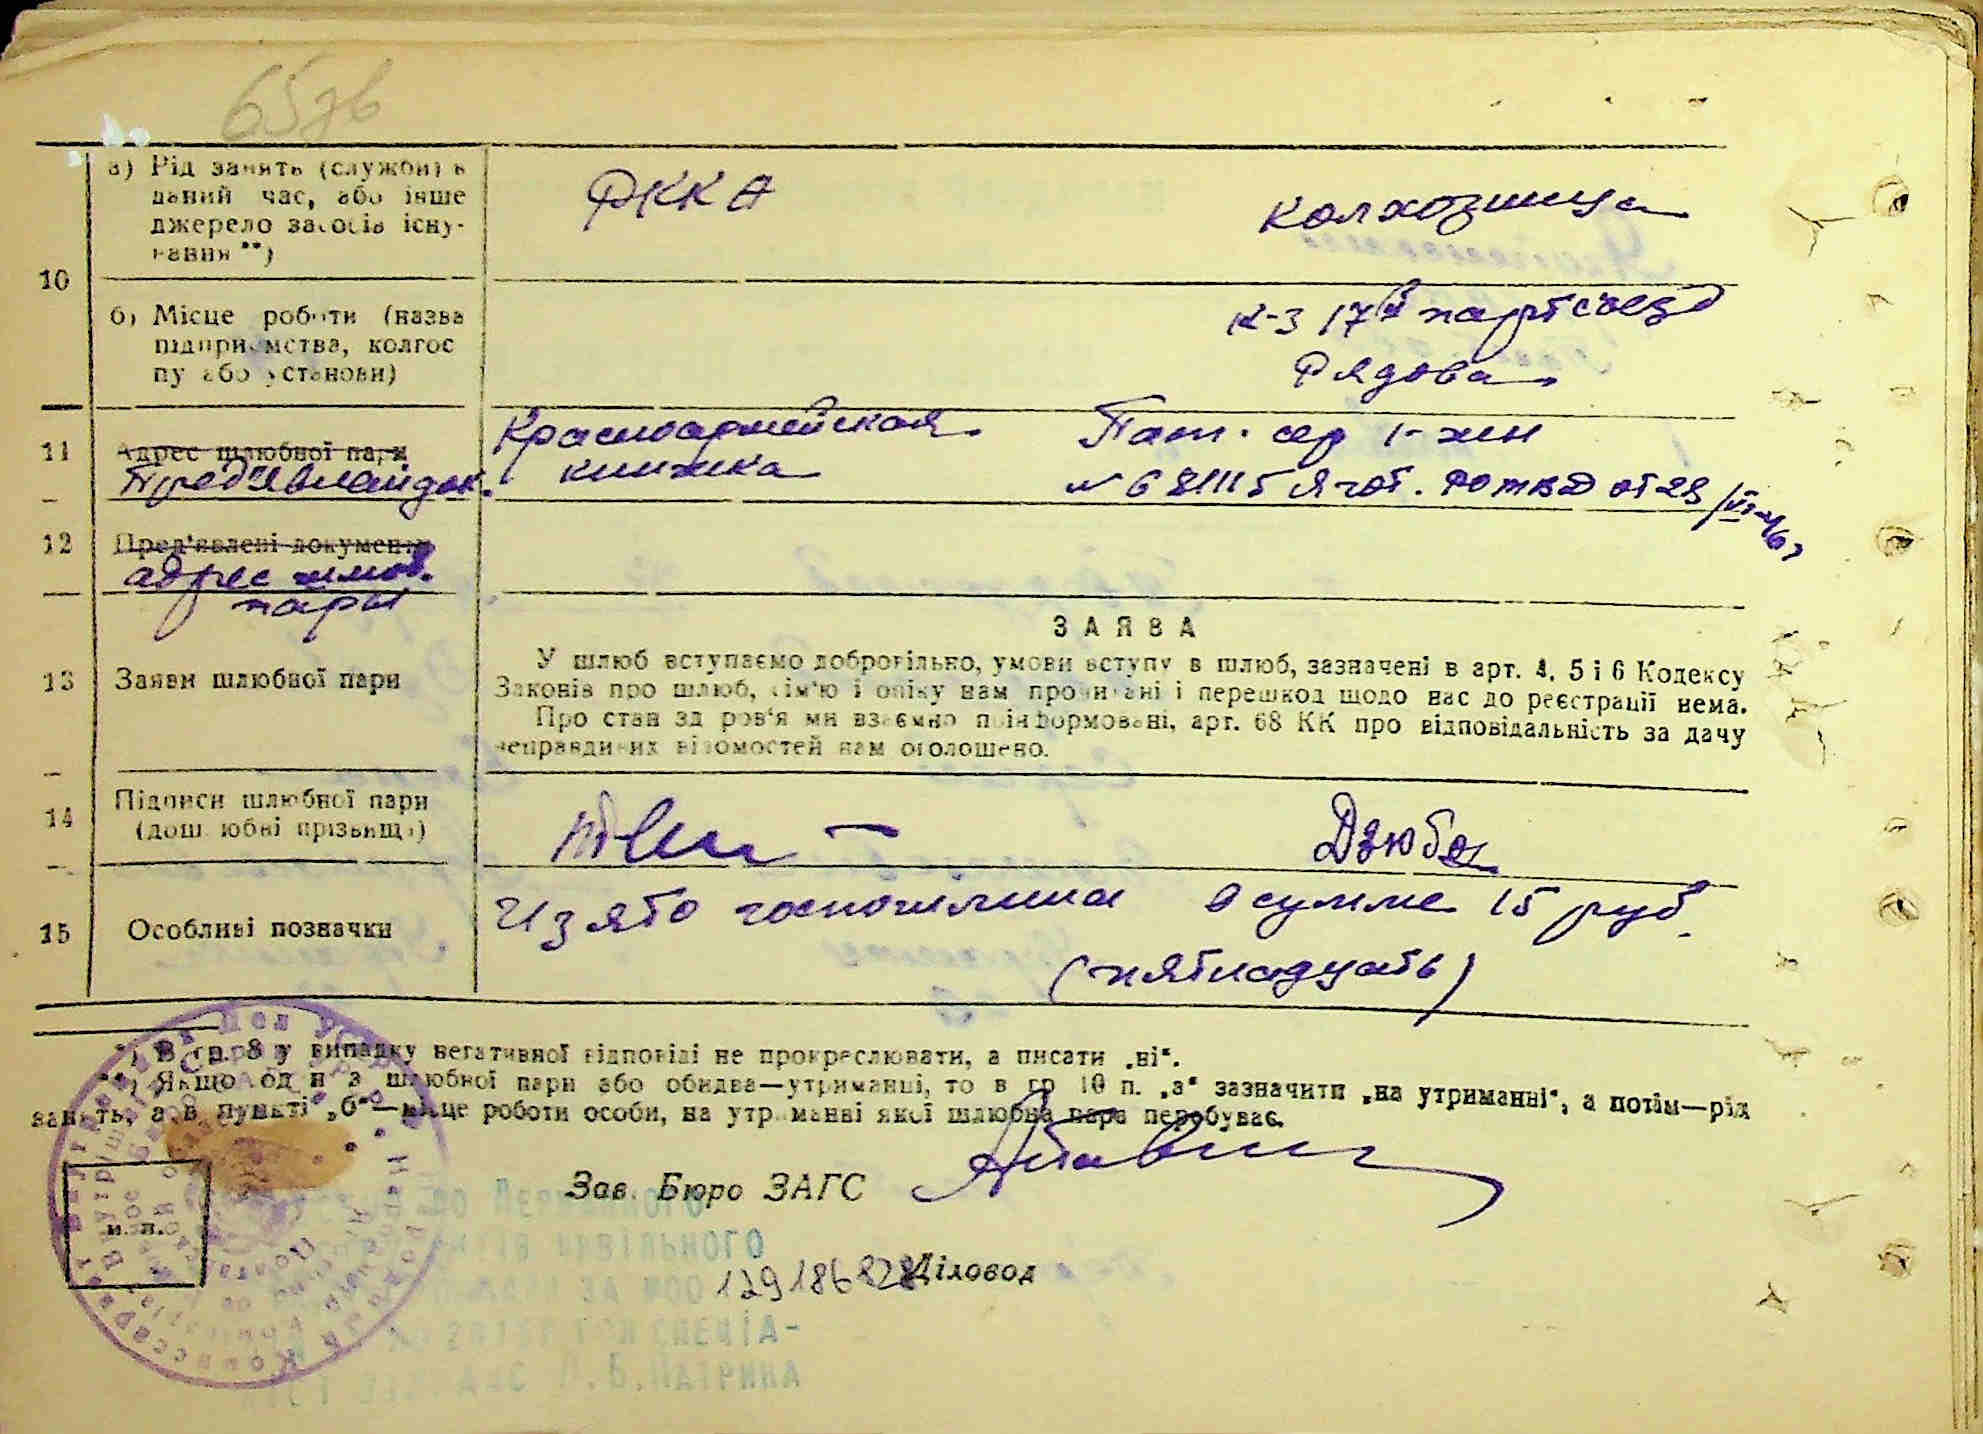 65зв
а) Рід занять (служби) в
даний час, або інше
джерело засобів існу-
вання **)
РККА
колхозница
10
б) Місце роботи (назва
підприємства, колгос
пу або установи)
к-з 17й партсъезд
Рядова
11
Адрес шлюбної пари
Предъявлен док.
Красноармейская
книжка
Пасп. сер
РО НКВД от 28
12
Пред'явлені документи
адрес шлюб.
пары
ЗАЯВА
13
Заяви шлюбної пари
У шлюб вступаємо добровільно, умови вступу в шлюб, зазначені в арт. 4, 5 і 6 Кодексу
Законів про шлюб, сім'ю і опіку нам прочитані і перешкод щодо нас до реєстрації нема.
Про стан здоров'я ми взаємно поінформовані, арт. 68 КК про відповідальність за дачу
неправдивих відомостей нам оголошено.
14
Підписи шлюбної пари
(дошлюбні прізвища)
Дзюба
15
Особливі позначки
Изято госпошлина в сумме 15 руб.
(пятнадцать)
*) В гр. 8 у випадку негативної відповіді не прокреслювати, а писати „ні“.
**) Якщо один з шлюбної пари або обидва—утриманці, то в гр 10 п. „а“ зазначити „на утриманні“, а потім—рід
занять, а в пункті „б“—місце роботи особи, на утриманні якої шлюбна пара перебуває.
Зав. Бюро ЗАГС
м. п.
129186828
Діловод